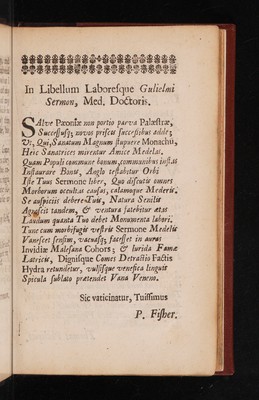 In Libellum Laboresque Gulielmi
Sermon, Med. Doctoris.
Salve Pæoniæ non portio parva Palæstræ,
Successusq; novos priscis successibus adde;
Ut, Qui, Sanatum Magnum stupuere Monachū,
Heic Sanatrices mirentur Amice Medelas.
Quam Populi commune bonum, communibus instas
Instaurare Bonis, Anglo testabitur Orbi
Iste Tuus Sermone liber, Quo discutis omnes
Morborum occultas causas, calamoque Mederis.
Se auspiciis debere Tuis, Natura Senilis
Agnoscit tandem, & ventura fatebitur ætas
Laudum quanta Tuo debet Monumenta labori.
Tunc cum morbifugis vestris Sermone Medelis
Vanescet sensim, vacuasq; facesset in auras
Invidiæ Malesana Cohors; & lurida Famæ
Latricis, Dignisque Comes Detractio Factis
Hydra retundetur, vulsisque venefica linguis
Spicula sublato prætendet Vana Veneno.
Sic vaticinatur, Tuissimus
P. Fisher.